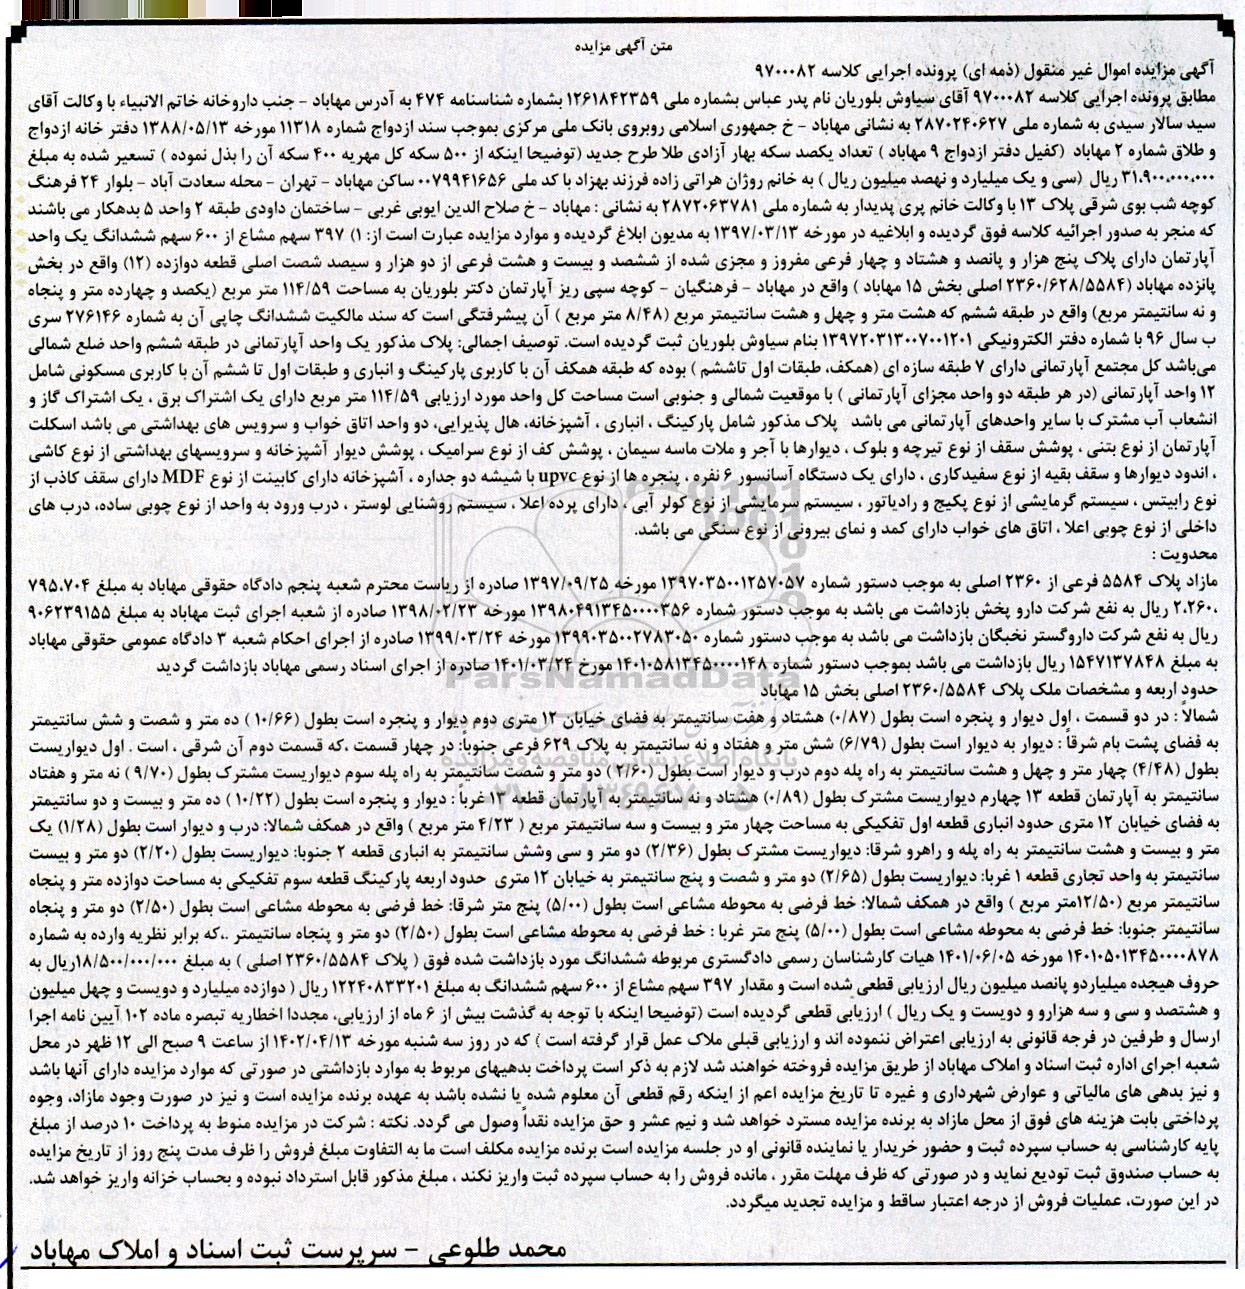 متن آگهی مزایده
آگهی مزایده اموال غیر منقول (ذمه ای) پرونده اجرایی کلاسه ۹۷۰۰۰۸۲
مطابق پرونده اجرایی کلاسه ۹۷۰۰۰۸۲ آقای سیاوش بلوریان نام پدر عباس بشماره ملی ۱۲۶۱۸۴۲۳۵۹ بشماره شناسنامه ۴۷۴ به آدرس مهاباد - جنب داروخانه خاتم الانبیاء با وکالت آقای
سید سالار سیدی به شماره ملی ۲۸۷۰۲۴۰۶۲۷ به نشانی مهاباد - خ جمهوری اسلامی روبروی بانک ملی مرکزی بموجب سند ازدواج شماره ۱۱۳۱۸ مورخه ۱۳۸۸/۰۵/۱۳ دفتر خانه ازدواج
و طلاق شماره ۲ مهاباد (کفیل دفتر ازدواج ۹ مهاباد ) تعداد یکصد سکه بهار آزادی طلا طرح جدید (توضیحا اینکه از ۵۰۰ سکه کل مهریه ۴۰۰ سکه آن را بذل نموده ) تسعیر شده به مبلغ
۳۱.۹۰۰.۰۰۰.۰۰۰ ریال (سی و یک میلیارد و نهصد میلیون ریال ) به خانم روژان هراتی زاده فرزند بهزاد با کد ملی ۰۰۷۹۹۴۱۶۵۶ ساکن مهاباد - تهران - محله سعادت آباد - بلوار ۲۴ فرهنگ
کوچه شب بوی شرقی پلاک ۱۳ با وکالت خانم پری پدیدار به شماره ملی ۲۸۷۲۰۶۳۷۸۱ به نشانی : مهاباد - خ صلاح الدین ایوبی غربی - ساختمان داودی طبقه ۲ واحد ۵ بدهکار می باشند
که منجر به صدور اجرائیه کلاسه فوق گردیده و ابلاغیه در مورخه ۱۳۹۷/۰۳/۱۳ به مدیون ابلاغ گردیده و موارد مزایده عبارت است از: ۱) ۳۹۷ سهم مشاع از ۶۰۰ سهم ششدانگ یک واحد
آپارتمان دارای پلاک پنج هزار و پانصد و هشتاد و چهار فرعی مفروز و مجزی شده از ششصد و بیست و هشت فرعی از دو هزار و سیصد شصت اصلی قطعه دوازده (۱۲) واقع در بخش
پانزده مهاباد (۲۳۶۰/۶۲۸/۵۵۸۴ اصلی بخش ۱۵ مهاباد ) واقع در مهاباد - فرهنگیان - کوچه سپی ریز آپارتمان دکتر بلوریان به مساحت ۱۱۴/۵۹ متر مربع (یکصد و چهارده متر و پنجاه
و نه سانتیمتر مربع) واقع در طبقه ششم که هشت متر و چهل و هشت سانتیمتر مربع (۸/۴۸ متر مربع ) آن پیشرفتگی است که سند مالکیت ششدانگ چاپی آن به شماره ۲۷۶۱۴۶ سری
ب سال ۹۶ با شماره دفتر الکترونیکی ۱۳۹۷۲۰۳۱۳۰۰۷۰۰۱۲۰۱ بنام سیاوش بلوریان ثبت گردیده است. توصیف اجمالی: پلاک مذکور یک واحد آپارتمانی در طبقه ششم واحد ضلع شمالی
می‌باشد کل مجتمع آپارتمانی دارای ۷ طبقه سازه ای (همکف، طبقات اول تاششم ) بوده که طبقه همکف آن با کاربری پارکینگ و انباری و طبقات اول تا ششم آن با کاربری مسکونی شامل
۱۲ واحد آپارتمانی (در هر طبقه دو واحد مجزای آپارتمانی ) با موقعیت شمالی و جنوبی است مساحت کل واحد مورد ارزیابی ۱۱۴/۵۹ متر مربع دارای یک اشتراک برق ، یک اشتراک گاز و
انشعاب آب مشترک با سایر واحدهای آپارتمانی می باشد پلاک مذکور شامل پارکینگ ، انباری ، آشپزخانه، هال پذیرایی، دو واحد اتاق خواب و سرویس های بهداشتی می باشد اسکلت
آپارتمان از نوع بتنی ، پوشش سقف از نوع تیرچه و بلوک ، دیوارها با آجر و ملات ماسه سیمان ، پوشش کف از نوع سرامیک ، پوشش دیوار آشپزخانه و سرویسهای بهداشتی از نوع کاشی
، اندود دیوارها و سقف بقیه از نوع سفیدکاری ، دارای یک دستگاه آسانسور ۶ نفره ، پنجره ها از نوع upvc با شیشه دو جداره ، آشپزخانه دارای کابینت از نوع MDF دارای سقف کاذب از
نوع رابیتس ، سیستم گرمایشی از نوع پکیج و رادیاتور ، سیستم سرمایشی از نوع کولر آبی ، دارای پرده اعلا ، سیستم روشنایی لوستر ، درب ورود به واحد از نوع چوبی ساده، درب های
داخلی از نوع چوبی اعلا ، اتاق های خواب دارای کمد و نمای بیرونی از نوع سنگی می باشد.
محدویت :
مازاد پلاک ۵۵۸۴ فرعی از ۲۳۶۰ اصلی به موجب دستور شماره ۱۳۹۷۰۳۵۰۰۱۲۵۷۰۵۷ مورخه ۱۳۹۷/۰۹/۲۵ صادره از ریاست محترم شعبه پنجم دادگاه حقوقی مهاباد به مبلغ ۷۹۵،۷۰۴
،۲،۲۶۰ ریال به نفع شرکت دارو پخش بازداشت می باشد به موجب دستور شماره ۱۳۹۸۰۴۹۱۳۴۵۰۰۰۰۳۵۶ مورخه ۱۳۹۸/۰۲/۲۳ صادره از شعبه اجرای ثبت مهاباد به مبلغ ۹۰۶۲۳۹۱۵۵
ریال به نفع شرکت داروگستر نخبگان بازداشت می باشد به موجب دستور شماره ۱۳۹۹۰۳۵۰۰۲۷۸۳۰۵۰ مورخه ۱۳۹۹/۰۳/۲۴ صادره از اجرای احکام شعبه ۳ دادگاه عمومی حقوقی مهاباد
به مبلغ ۱۵۴۷۱۳۷۸۴۸ ریال بازداشت می باشد بموجب دستور شماره ۱۴۰۱۰۵۸۱۳۴۵۰۰۰۰۱۴۸ مورخ ۱۴۰۱/۰۳/۲۴ صادره از اجرای اسناد رسمی مهاباد بازداشت گردید
حدود اربعه و مشخصات ملک پلاک ۲۳۶۰/۵۵۸۴ اصلی بخش ۱۵ مهاباد
شمالاً : در دو قسمت ، اول دیوار و پنجره است بطول (۰/۸۷) هشتاد و هفت سانتیمتر به فضای خیابان ۱۲ متری دوم دیوار و پنجره است بطول (۱۰/۶۶ ) ده متر و شصت و شش سانتیمتر
به فضای پشت بام شرقاً : دیوار به دیوار است بطول (۶/۷۹) شش متر و هفتاد و نه سانتیمتر به پلاک ۶۲۹ فرعی جنوباً: در چهار قسمت ،که قسمت دوم آن شرقی ، است . اول دیواریست
بطول (۴/۴۸) چهار متر و چهل و هشت سانتیمتر به راه پله دوم درب و دیوار است بطول (۲/۶۰ ) دو متر و شصت سانتیمتر به راه پله سوم دیواریست مشترک بطول (۹/۷۰ ) نه متر و هفتاد
سانتیمتر به آپارتمان قطعه ۱۳ چهارم دیواریست مشترک بطول (۰/۸۹) هشتاد و نه سانتیمتر به آپارتمان قطعه ۱۳ غرباً : دیوار و پنجره است بطول (۱۰/۲۲ ) ده متر و بیست و دو سانتیمتر
به فضای خیابان ۱۲ متری حدود انباری قطعه اول تفکیکی به مساحت چهار متر و بیست و سه سانتیمتر مربع ( ۴/۲۳ متر مربع ) واقع در همکف شمالا: درب و دیوار است بطول (۱/۲۸) یک
متر و بیست و هشت سانتیمتر به راه پله و راهرو شرقا: دیواریست مشترک بطول (۲/۳۶) دو متر و سی وشش سانتیمتر به انباری قطعه ۲ جنوبا: دیواریست بطول (۲/۲۰) دو متر و بیست
سانتیمتر به واحد تجاری قطعه ۱ غربا: دیواریست بطول (۲/۶۵) دو متر و شصت و پنج سانتیمتر به خیابان ۱۲ متری حدود اربعه پارکینگ قطعه سوم تفکیکی به مساحت دوازده متر و پنجاه
سانتیمتر مربع (۱۲/۵۰متر مربع ) واقع در همکف شمالا: خط فرضی به محوطه مشاعی است بطول (۵/۰۰) پنج متر شرقا: خط فرضی به محوطه مشاعی است بطول (۲/۵۰) دو متر و پنجاه
سانتیمتر جنوبا: خط فرضی به محوطه مشاعی است بطول (۵/۰۰) پنج متر غربا : خط فرضی به محوطه مشاعی است بطول (۲/۵۰) دو متر و پنجاه سانتیمتر .،که برابر نظریه وارده به شماره
۱۴۰۱۰۵۰۱۳۴۵۰۰۰۰۸۷۸ مورخه ۱۴۰۱/۰۶/۰۵ هیات کارشناسان رسمی دادگستری مربوطه ششدانگ مورد بازداشت شده فوق ( پلاک ۲۳۶۰/۵۵۸۴ اصلی ) به مبلغ ۱۸/۵۰۰/۰۰۰/۰۰۰ریال به
حروف هیجده میلیاردو پانصد میلیون ریال ارزیابی قطعی شده است و مقدار ۳۹۷ سهم مشاع از ۶۰۰ سهم ششدانگ به مبلغ ۱۲۲۴۰۸۳۳۲۰۱ ریال ( دوازده میلیارد و دویست و چهل میلیون
و هشتصد و سی و سه هزارو و دویست و یک ریال ) ارزیابی قطعی گردیده است (توضیحا اینکه با توجه به گذشت بیش از ۶ ماه از ارزیابی، مجددا اخطاریه تبصره ماده ۱۰۲ آیین نامه اجرا
ارسال و طرفین در فرجه قانونی به ارزیابی اعتراض ننموده اند و ارزیابی قبلی ملاک عمل قرار گرفته است ) که در روز سه شنبه مورخه ۱۴۰۲/۰۴/۱۳ از ساعت ۹ صبح الی ۱۲ ظهر در محل
شعبه اجرای اداره ثبت اسناد و املاک مهاباد از طریق مزایده فروخته خواهند شد لازم به ذکر است پرداخت بدهیهای مربوط به موارد بازداشتی در صورتی که موارد مزایده دارای آنها باشد
و نیز بدهی های مالیاتی و عوارض شهرداری و غیره تا تاریخ مزایده اعم از اینکه رقم قطعی آن معلوم شده یا نشده باشد به عهده برنده مزایده است و نیز در صورت وجود مازاد، وجوه
پرداختی بابت هزینه های فوق از محل مازاد به برنده مزایده مسترد خواهد شد و نیم عشر و حق مزایده نقداً وصول می گردد. نکته : شرکت در مزایده منوط به پرداخت ۱۰ درصد از مبلغ
پایه کارشناسی به حساب سپرده ثبت و حضور خریدار یا نماینده قانونی او در جلسه مزایده است برنده مزایده مکلف است ما به التفاوت مبلغ فروش را ظرف مدت پنج روز از تاریخ مزایده
به حساب صندوق ثبت تودیع نماید و در صورتی که ظرف مهلت مقرر ، مانده فروش را به حساب سپرده ثبت واریز نکند ، مبلغ مذکور قابل استرداد نبوده و بحساب خزانه واریز خواهد شد.
در این صورت، عملیات فروش از درجه اعتبار ساقط و مزایده تجدید میگردد.
محمد طلوعی - سرپرست ثبت اسناد و املاک مهاباد
ParsNamadData
پایگاه اطلاع رسانی مناقصه و مزایده